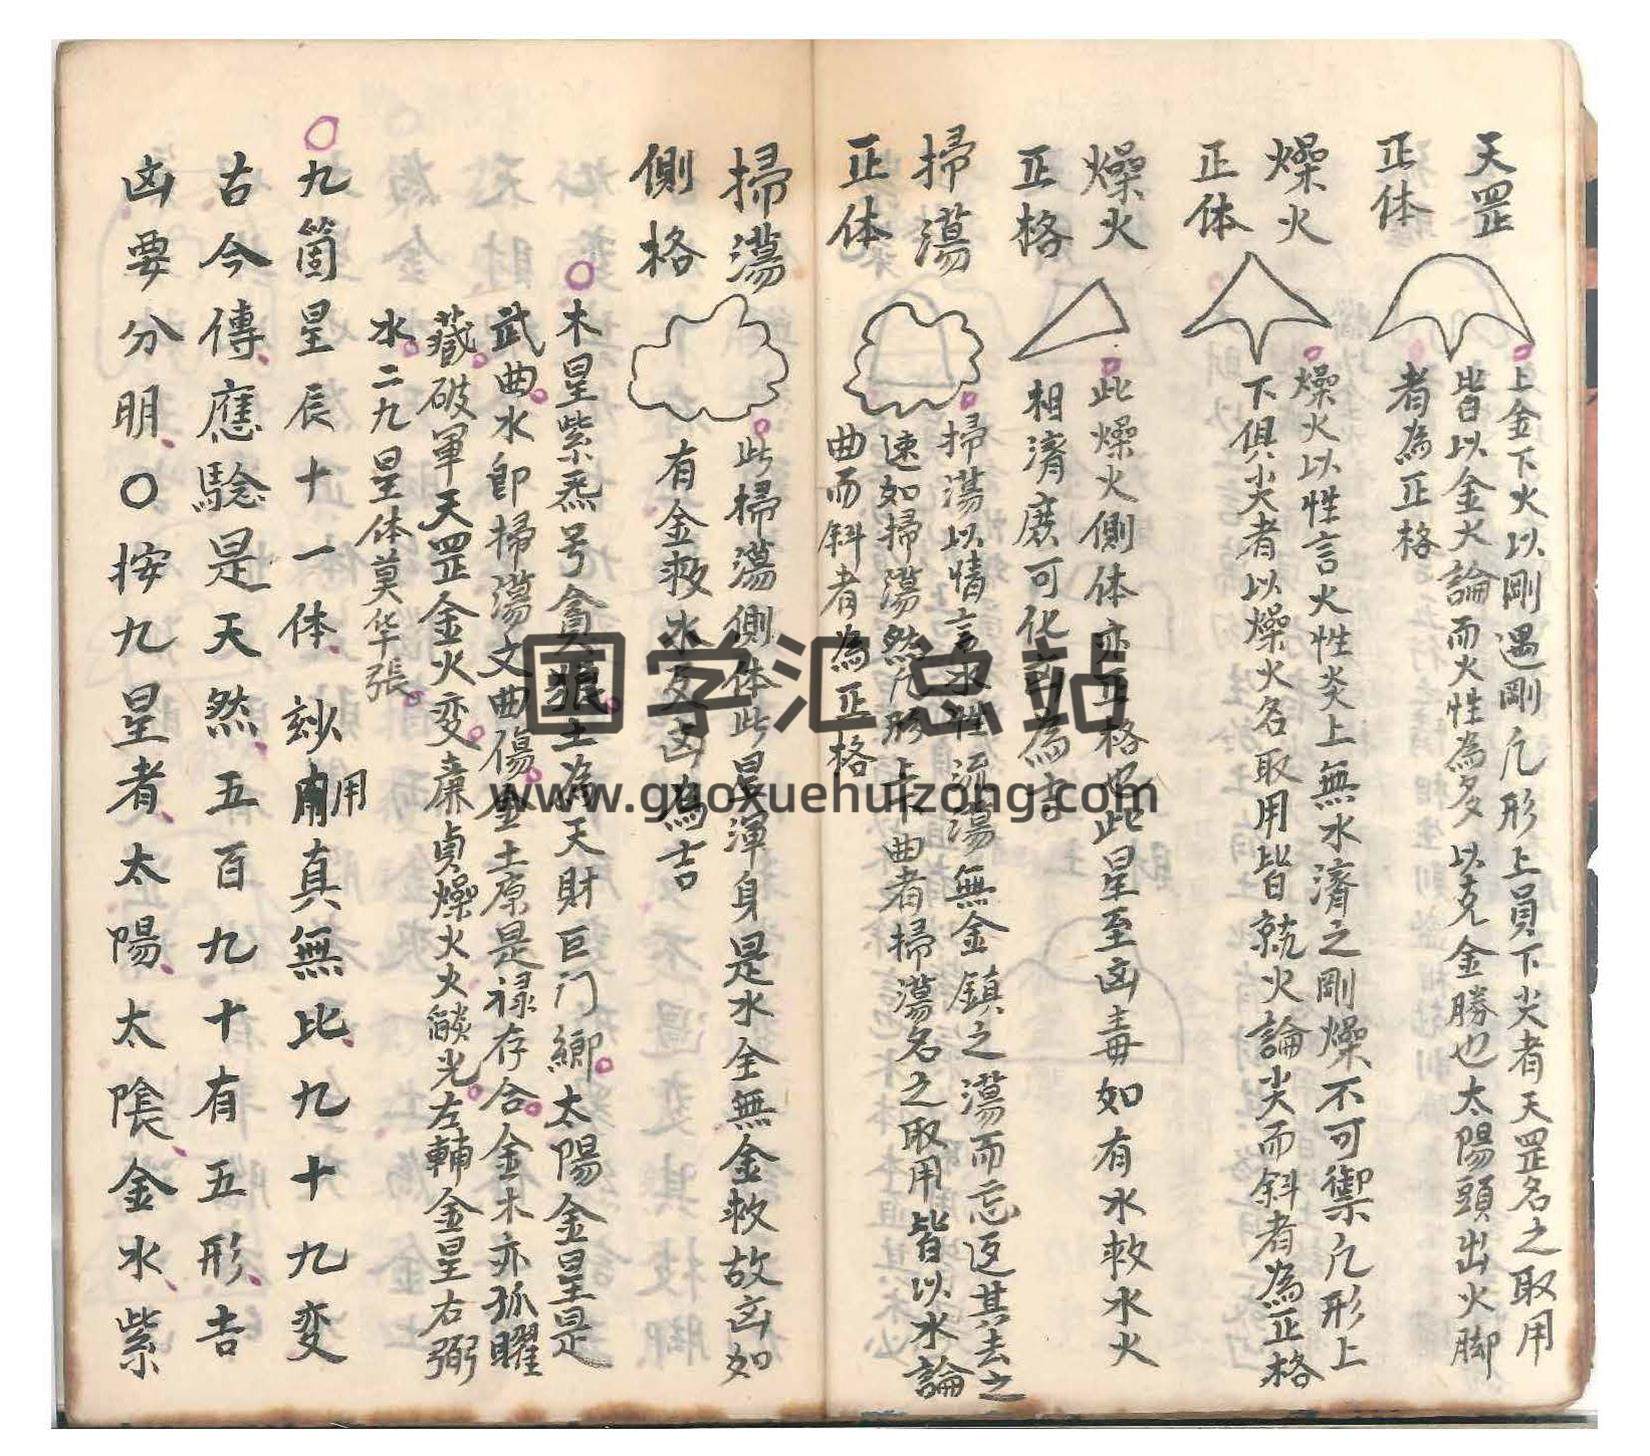 天罡
正体
上金下火以剛遇剛凢形上員下尖者天罡名之取用
皆以金火論而火性為多以克金勝也太陽頭出火脚
者為正格
燥火
正体
燥火以性言火性炎上無水濟之剛燥不可禦凢形上
下俱尖者以燥火名取用皆就火論尖而斜者為正格
燥火
正格
此燥火側体亦正格也此星至凶毒如有水救水火
相濟廢可化為吉
掃蕩
正体
掃蕩以情言水性流蕩無金鎮之蕩而忘返其去之
速如掃蕩然凢形卡曲者掃蕩名之取用皆以水論
曲而斜者為正格
掃蕩
側格
此掃蕩側体此星渾身是水全無金救故凶如
有金救水反凶為吉
木星紫炁号貪張土為天財巨门鄉太陽金星是
武曲水即掃蕩文曲傷金土原是禄存合金木亦孤曜
藏破軍天罡金火变廉貞燥火火燄光左輔金星右弼
水二九星体莫华張
九箇星辰十一体玅用真無比九十九变
古今傳應騐是天然五百九十有五形吉
凶要分明〇按九星者太陽太陰金水紫
国学汇总站
www.guoxuehuizong.com